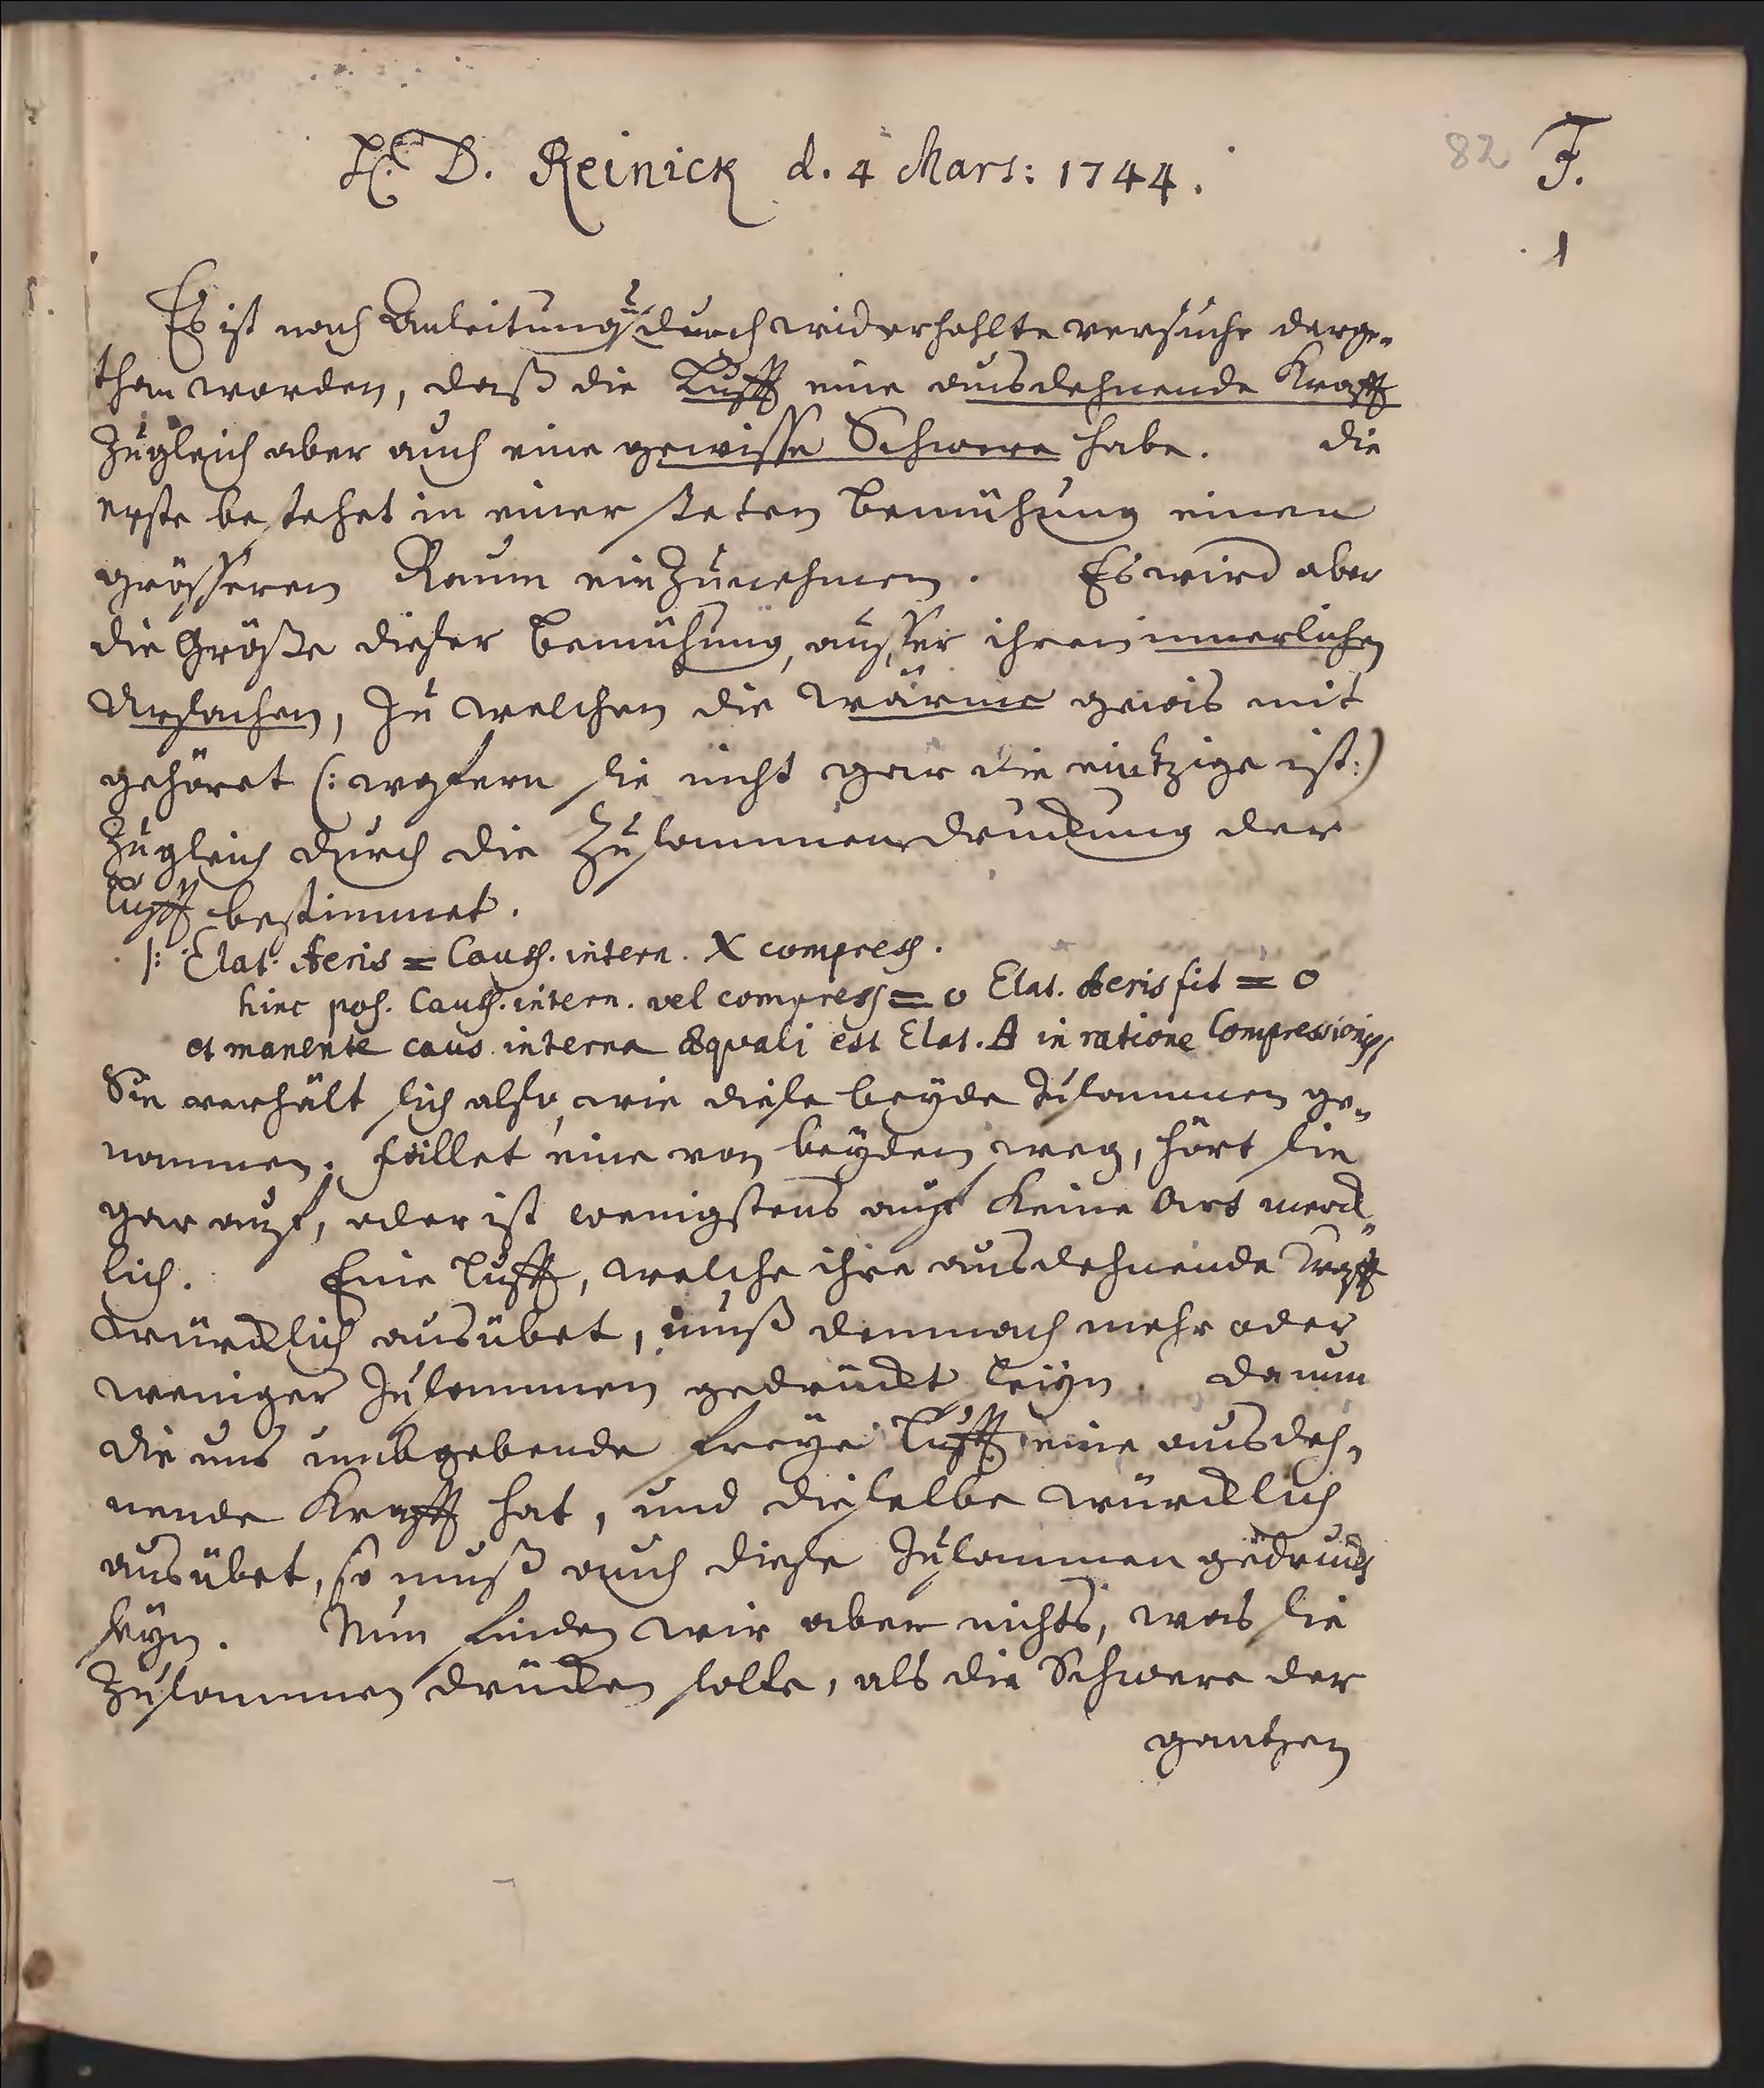 H. D. Reinick d. 4 Mars: 1744.
82 F.
1
Es ist nach Anleitung durch widerhohlte versuche darge-
than worden, daß die Lufft eine ausdehnende Krafft
zugleich aber auch eine gewisse Schwere habe. die
erste bestehet in einer steten bemühung einen
grösseren Raum einzunehmen. Es wird aber
die Größe dieser bemühung, ausser ihren innerlichen
Ursachen, zu welchen die wärme gewis mit
gehöret (: wofern sie nicht gar die eintzige ist :)
zugleich durch die Zusammendruckung der
Lufft bestimmet.
/: Elat. Aeris = Causs. intern. X compress.
hinc pos. Causs. intern. vel compress = 0 Elat. Aeris fit = 0
et manente caus. interna æquali est Elat. A in ratione Compressionis
Sie verhält sich also, wie diese beyde zusammen ge-
nommen. fället eine von beyden weg, hört sie
gar auf, oder ist wenigstens auf keine Art merck-
lich. Eine Lufft, welche ihre ausdehnende Krafft
würcklich ausübet, muß demnach mehr oder
weniger zusammen gedrückt seyn. da nun
die uns umbgebende freye Lufft eine ausdeh-
nende Krafft hat, und dieselbe würcklich
ausübet, so muß auch diese zusammen gedruckt
seyn. Nun finden wir aber nichts, was sie
zusammen drücken solte, als die Schwere der
gantzen